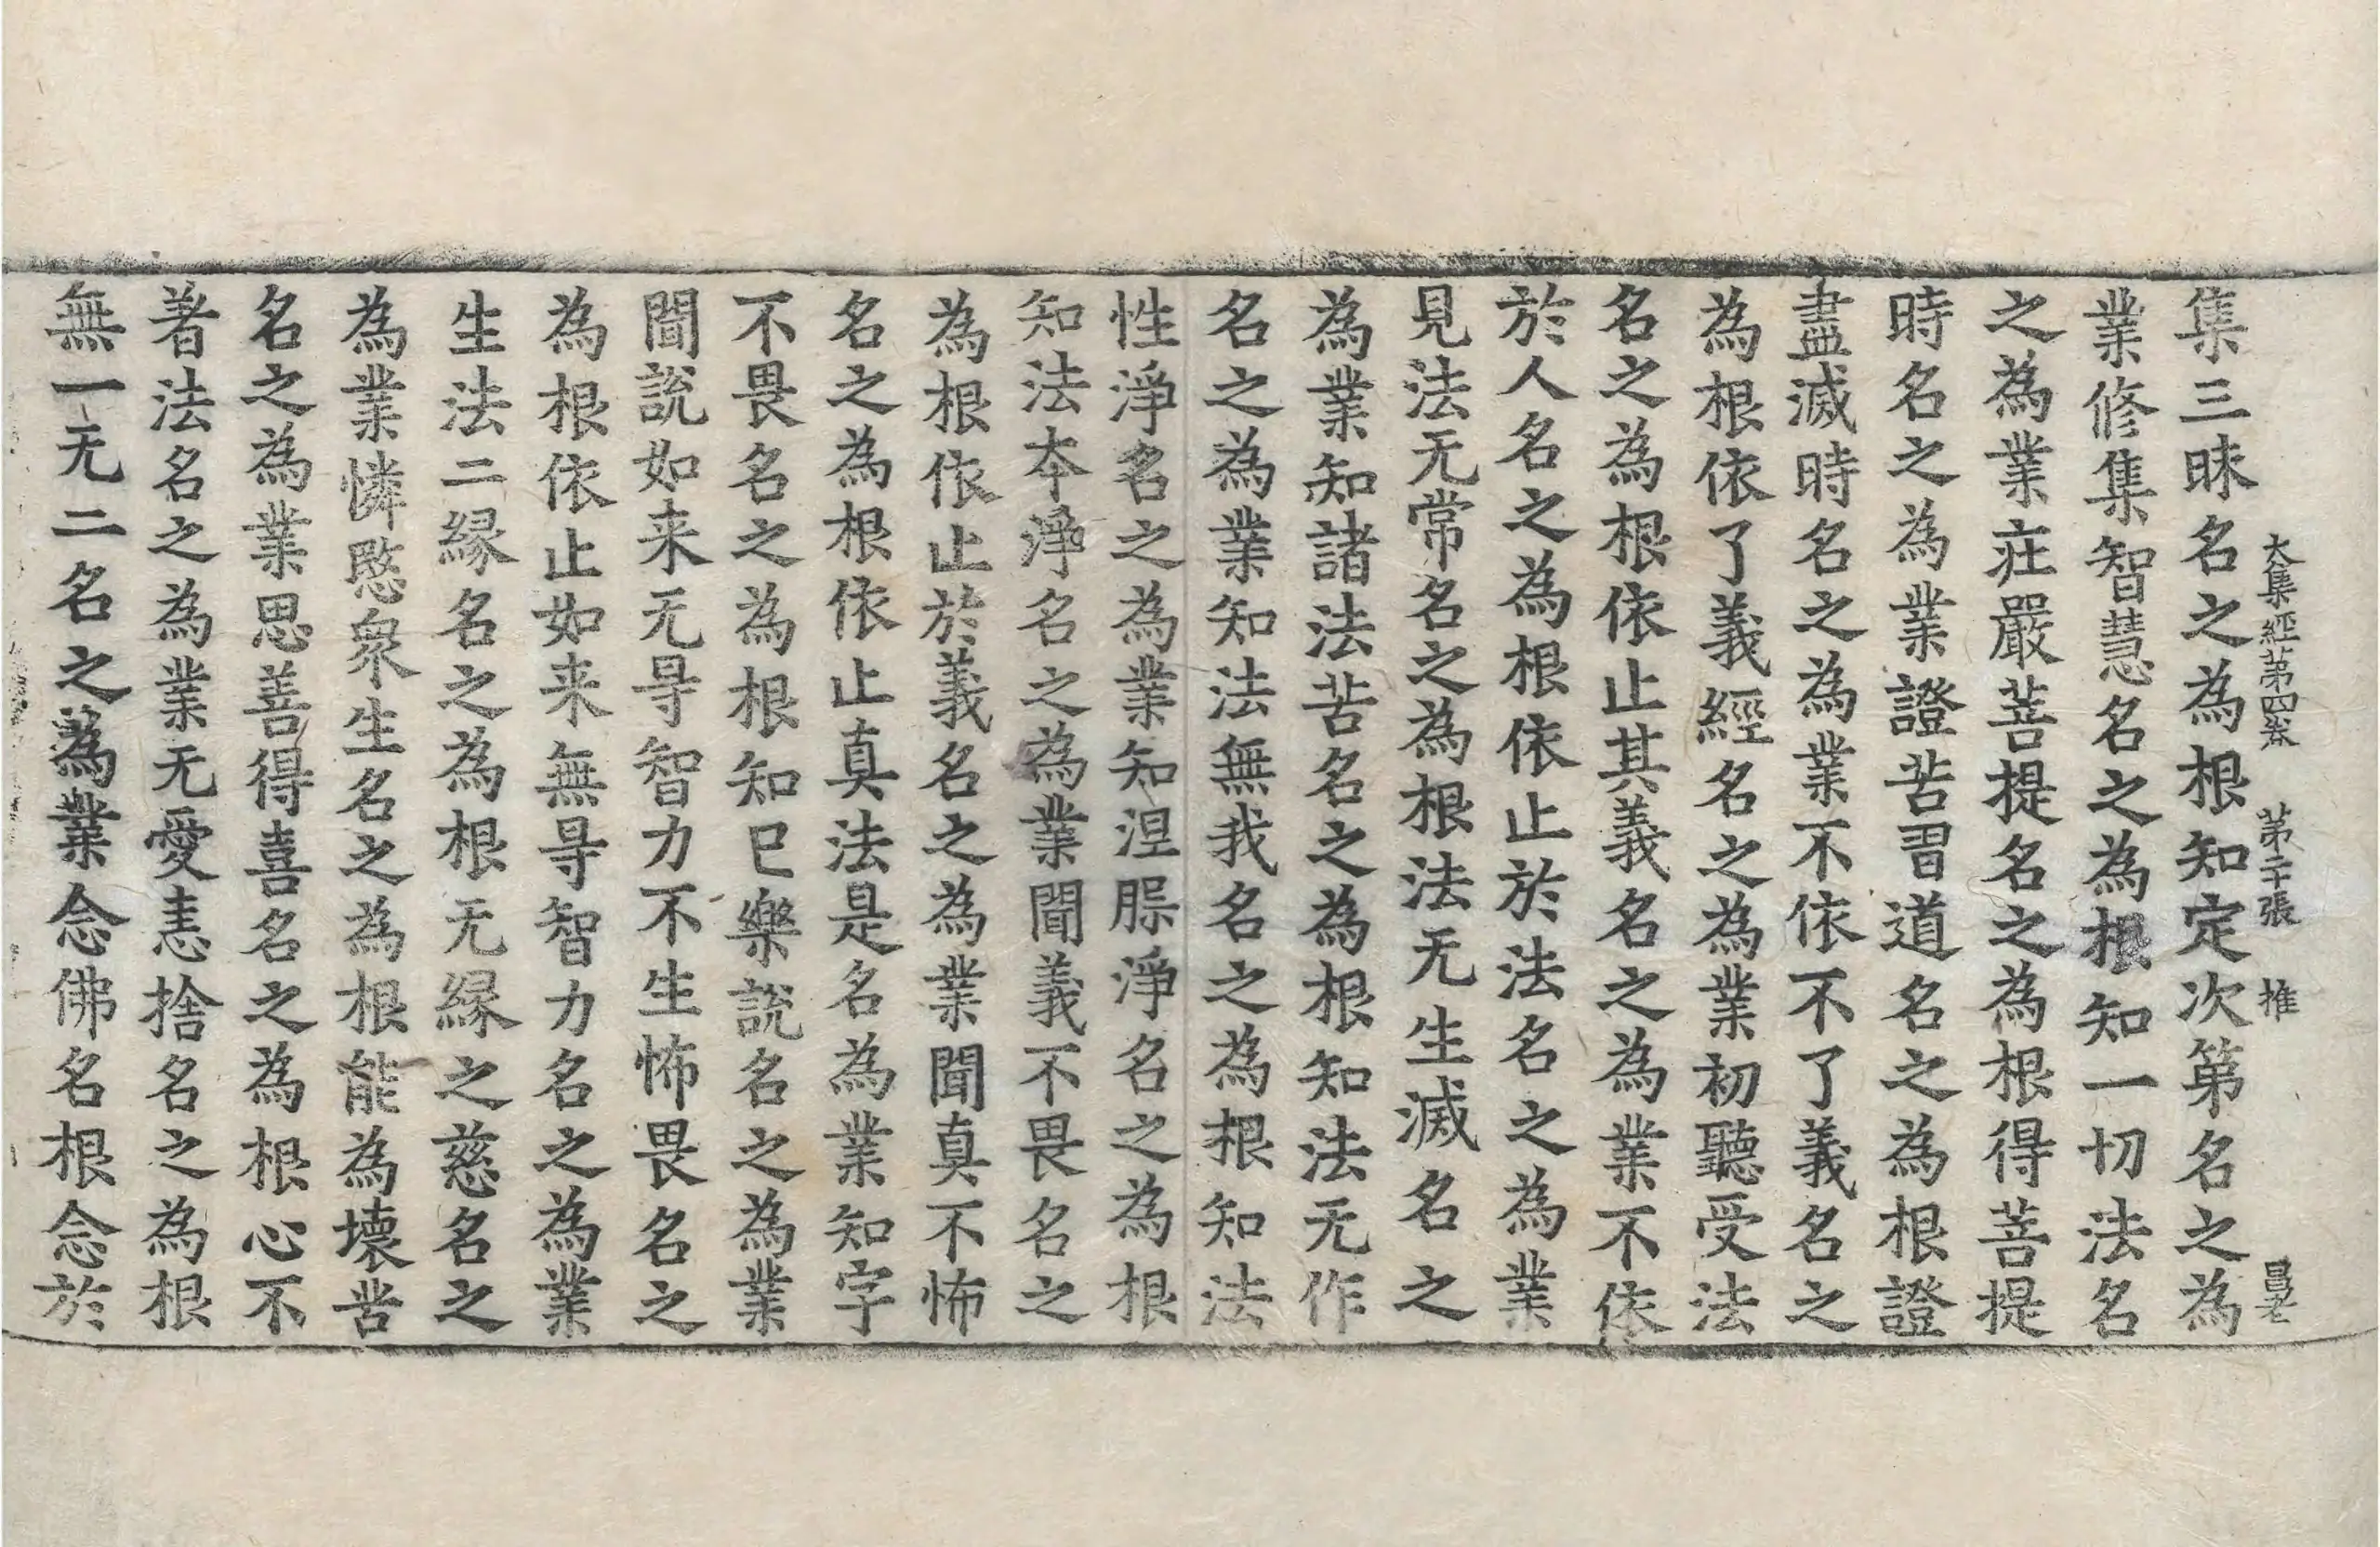 大集經第四卷 第二十張 推 昌老
集三昧名之為根知定次第名之為
業修集智慧名之為根知一切法名
之為業莊嚴菩提名之為根得菩提
時名之為業證苦習道名之為根證
盡滅時名之為業不依不了義名之
為根依了義經名之為業初聽受法
名之為根依止其義名之為業不依
於人名之為根依止於法名之為業
見法无常名之為根法无生滅名之
為業知諸法苦名之為根知法无作
名之為業知法無我名之為根知法
性淨名之為業知涅槃淨名之為根
知法本淨名之為業聞義不畏名之
為根依止於義名之為業聞真不怖
名之為根依止真法是名為業知字
不畏名之為根知已樂說名之為業
聞說如来无㝵智力不生怖畏名之
為根依止如来無㝵智力名之為業
生法二緣名之為根无緣之慈名之
為業憐愍衆生名之為根能為壞苦
名之為業思善得喜名之為根心不
著法名之為業无愛恚捨名之為根
無一无二名之為業念佛名根念於